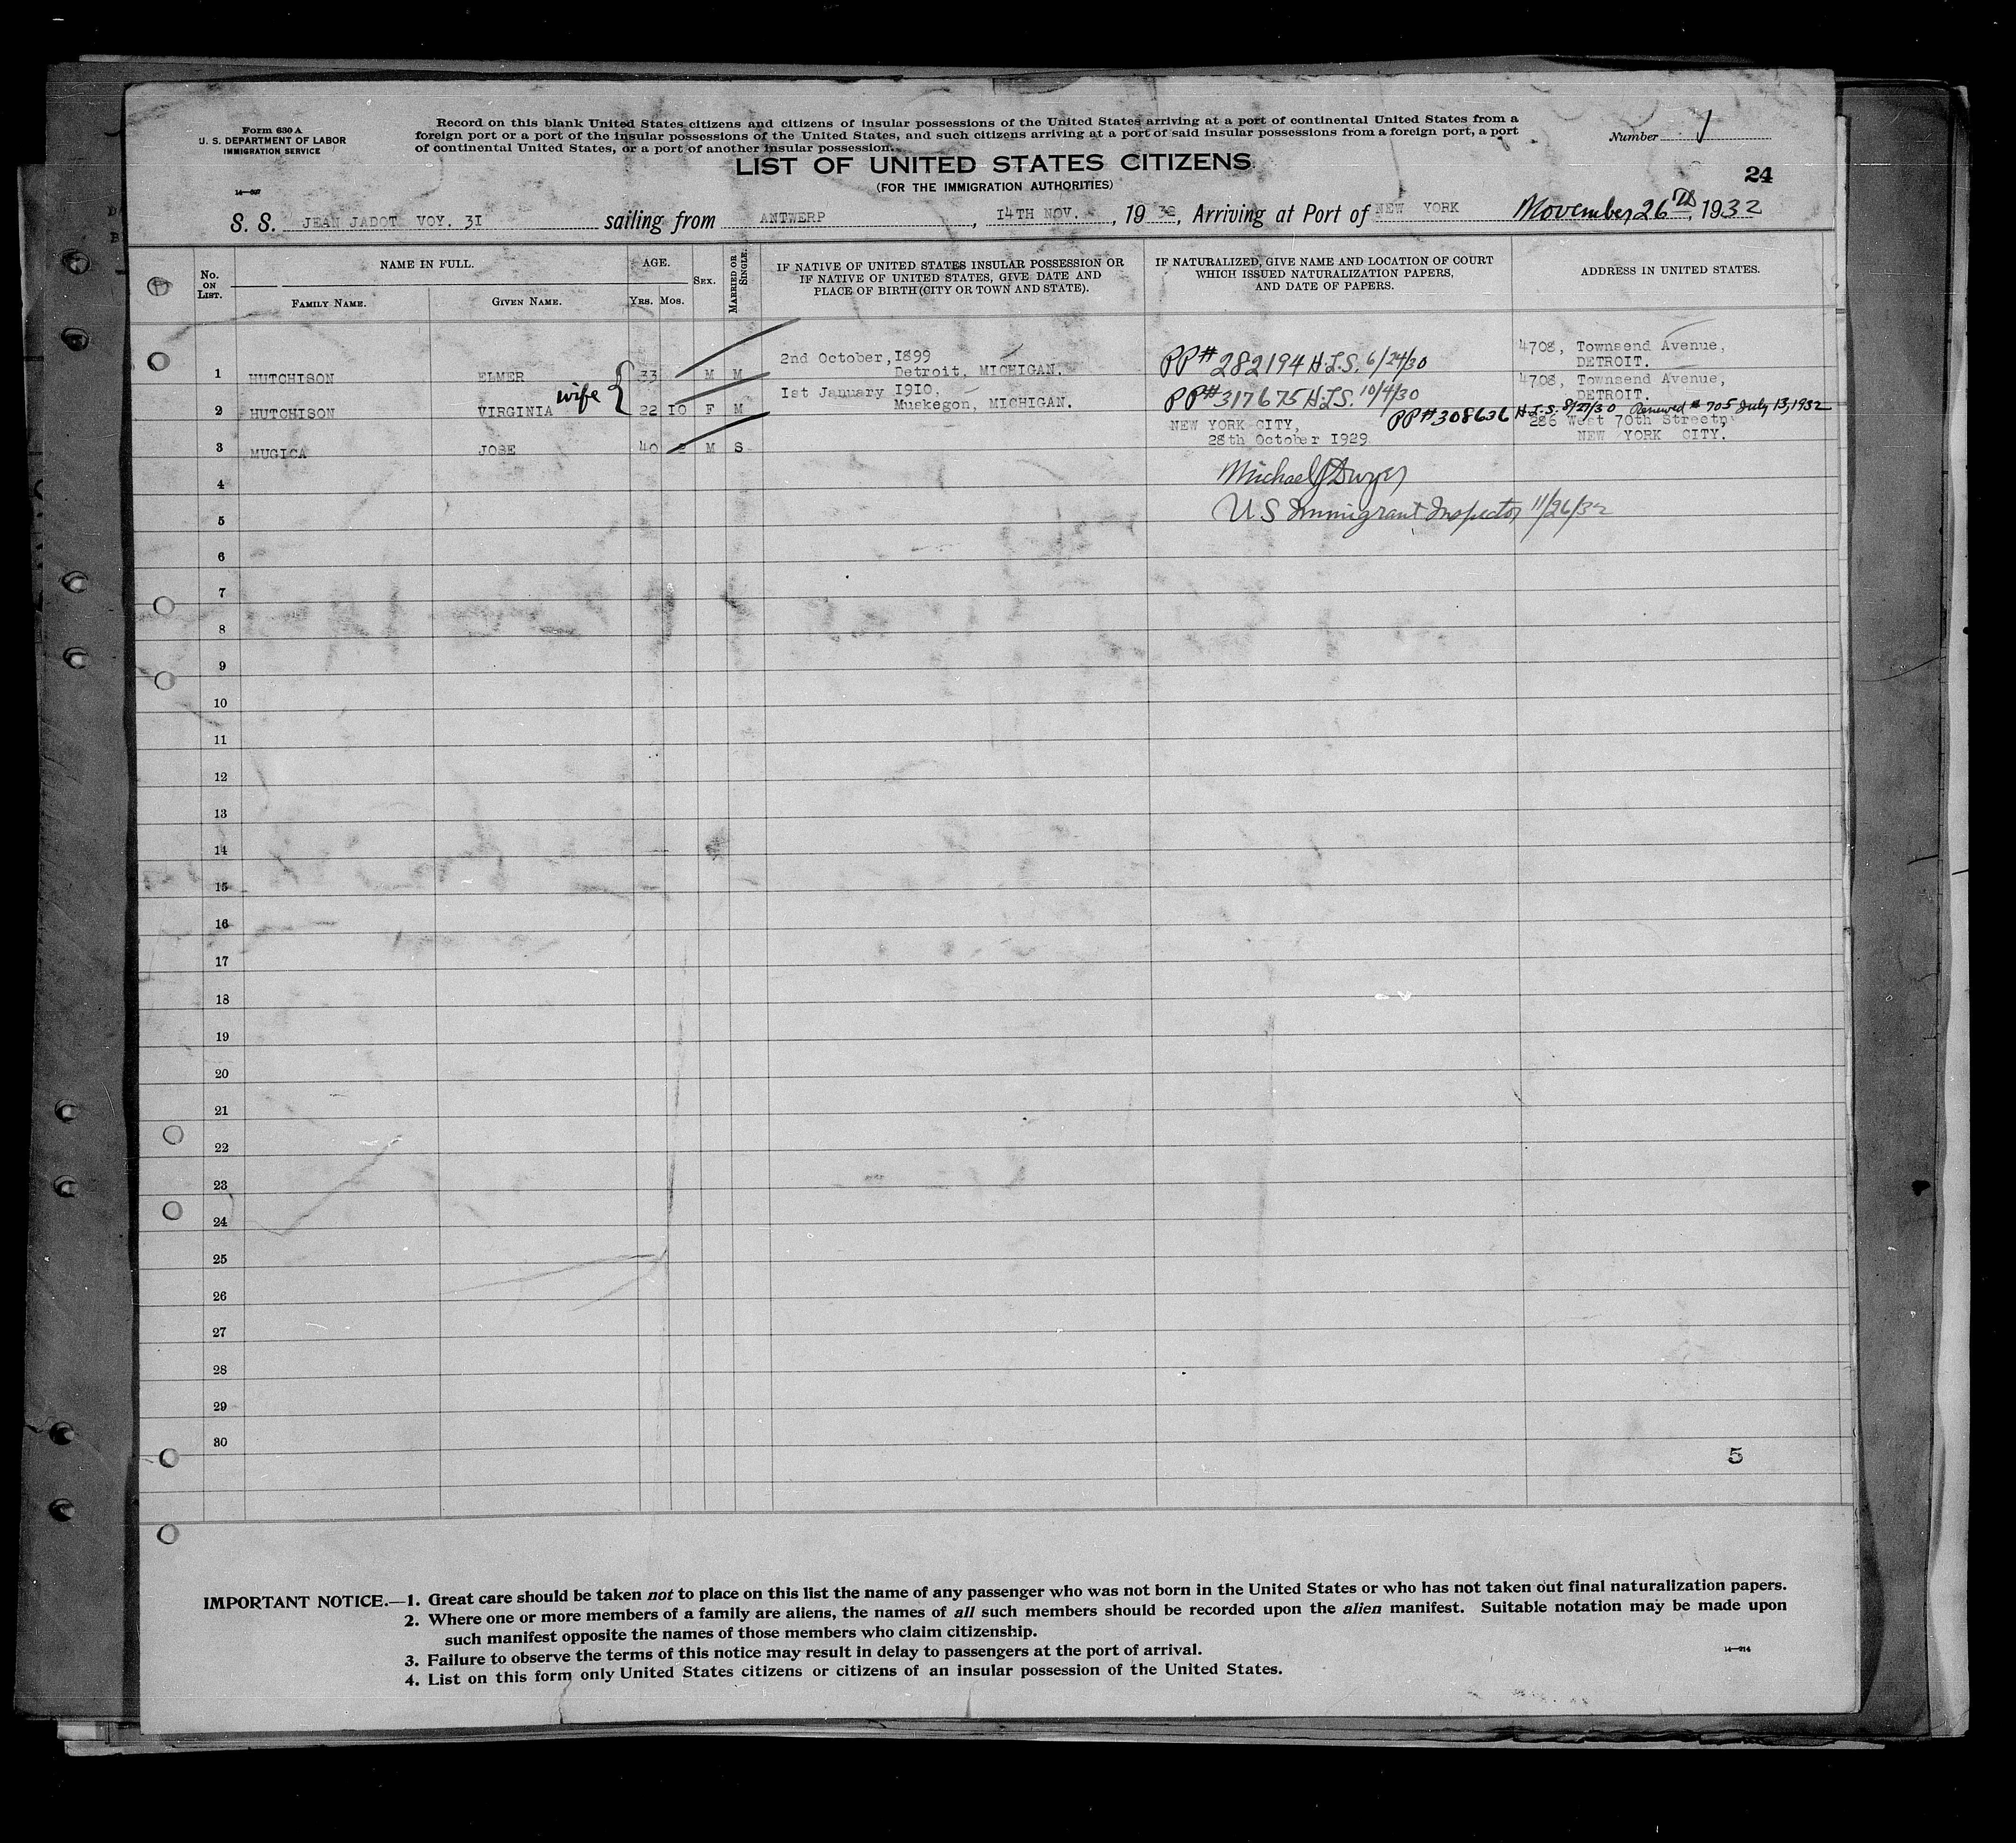 Form 630 A
U. S. DEPARTMENT OF LABOR
IMMIGRATION SERVICE
Record on this blank United States citizens and citizens of insular possessions of the United States arriving at a port of continental United States from a
foreign port or a port of the insular possessions of the United States, and such citizens arriving at a port of said insular possessions from a foreign port, a port
of continental United States, or a port of another insular possession.
Number
LIST OF UNITED STATES CITIZENS
(FOR THE IMMIGRATION AUTHORITIES)
24
S. S. JEAN JADOT VOY. 31 sailing from ANTWERP, 14TH NOV., 1932, Arriving at Port of NEW YORK November 26th, 1932
No. ON LIST.
NAME IN FULL.
FAMILY NAME.
GIVEN NAME.
AGE.
YRS. MOS.
SEX.
MARRIED OR SINGLE.
IF NATIVE OF UNITED STATES INSULAR POSSESSION OR
IF NATIVE OF UNITED STATES, GIVE DATE AND
PLACE OF BIRTH (CITY OR TOWN AND STATE).
IF NATURALIZED, GIVE NAME AND LOCATION OF COURT
WHICH ISSUED NATURALIZATION PAPERS,
AND DATE OF PAPERS.
ADDRESS IN UNITED STATES.
2nd October, 1899
4708, Townsend Avenue,
1 HUTCHISON ELMER 33 M M Detroit, MICHIGAN. PP# 282194 H.L.S. 6/24/30 DETROIT.
wife
1st January 1910,
4708, Townsend Avenue,
2 HUTCHISON VIRGINIA 22 10 F M Muskegon, MICHIGAN. PP# 317675 H.L.S. 10/4/30 DETROIT.
PP# 308636 H.L.S. 8/27/30 Renewed # 705 July 13, 1932
NEW YORK CITY, 286 West 70th Street,
3 MUGICA JOSE 40 2 M S 28th October 1929 NEW YORK CITY.
4 Michael J Dwyer
5 U S Immigrant Inspector 11/26/32
6
7
8
9
10
11
12
13
14
15
16
17
18
19
20
21
22
23
24
25
26
27
28
29
30
5
IMPORTANT NOTICE.—1. Great care should be taken not to place on this list the name of any passenger who was not born in the United States or who has not taken out final naturalization papers.
2. Where one or more members of a family are aliens, the names of all such members should be recorded upon the alien manifest. Suitable notation may be made upon
such manifest opposite the names of those members who claim citizenship.
3. Failure to observe the terms of this notice may result in delay to passengers at the port of arrival.
4. List on this form only United States citizens or citizens of an insular possession of the United States.